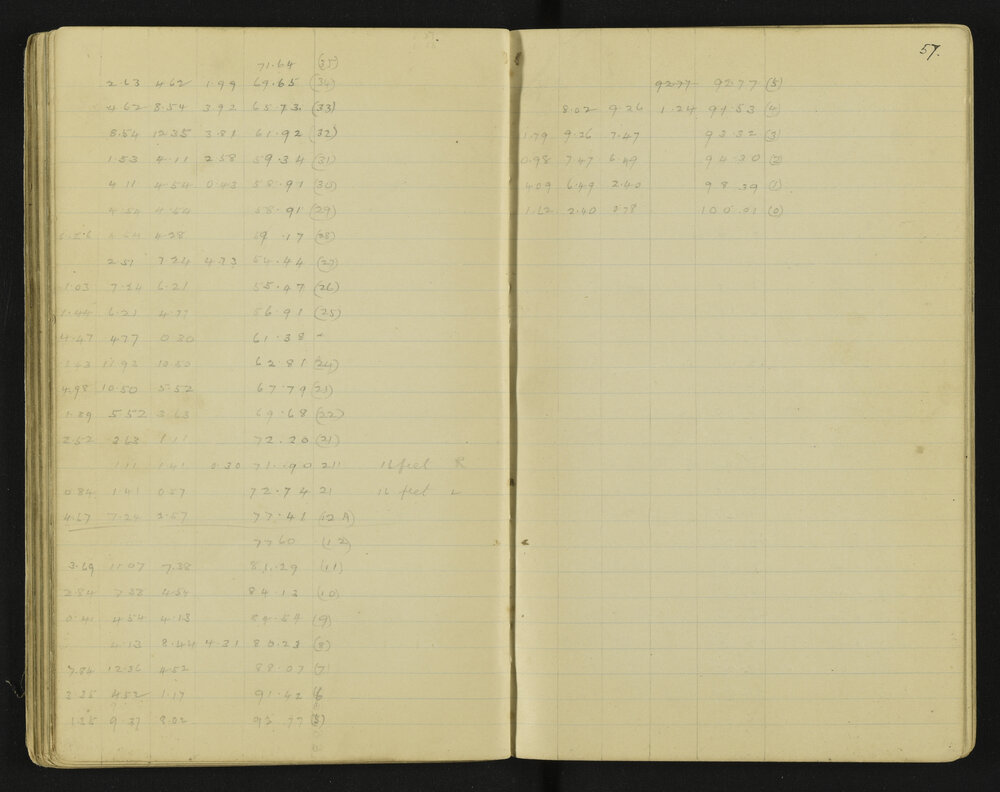 71.64 (35)
2.63 4.62 1.99 69.65 (34)
4.62 8.54 3.92 65.73 (33)
8.54 12.35 3.81 61.92 (32)
1.53 4.11 2.58 59.34 (31)
4.11 4.54 0.43 58.91 (30)
4.54 4.54 58.91 (29)
4.28 59.17 (28)
2.51 7.24 4.73 54.44 (27)
1.03 7.24 6.21 55.47 (26)
1.44 6.21 4.77 56.91 (25)
4.47 4.77 0.30 61.38 -
1.43 11.93 10.50 62.81 (24)
4.98 10.50 5.52 67.79 (23)
1.89 5.52 3.63 69.68 (22)
2.52 3.63 1.11 72.20 (21)
1.11 1.41 0.30 71.90 21 16 feet R
0.84 1.41 0.57 72.74 21 16 feet L
4.67 7.24 2.57 77.41 (12 A)
77 60 (12)
3.69 11.07 7.38 81.29 (11)
2.84 7.38 4.54 84.13 (10)
0.41 4.54 4.13 84.54 (9)
4.13 8.44 4.31 80.23 (8)
7.84 12.36 4.52 88.07 (7)
3.35 4.52 1.17 91.42 6
1.35 9.37 8.02 92.77 (5)
57.
92.77 92.77 (5)
8.02 9.26 1.24 91.53 (4)
1.79 9.26 7.47 93.32 (3)
0.98 7.47 6.49 94.30 (2)
4.09 6.49 2.40 98.39 (1)
1.62 2.40 0.78 100.01 (0)